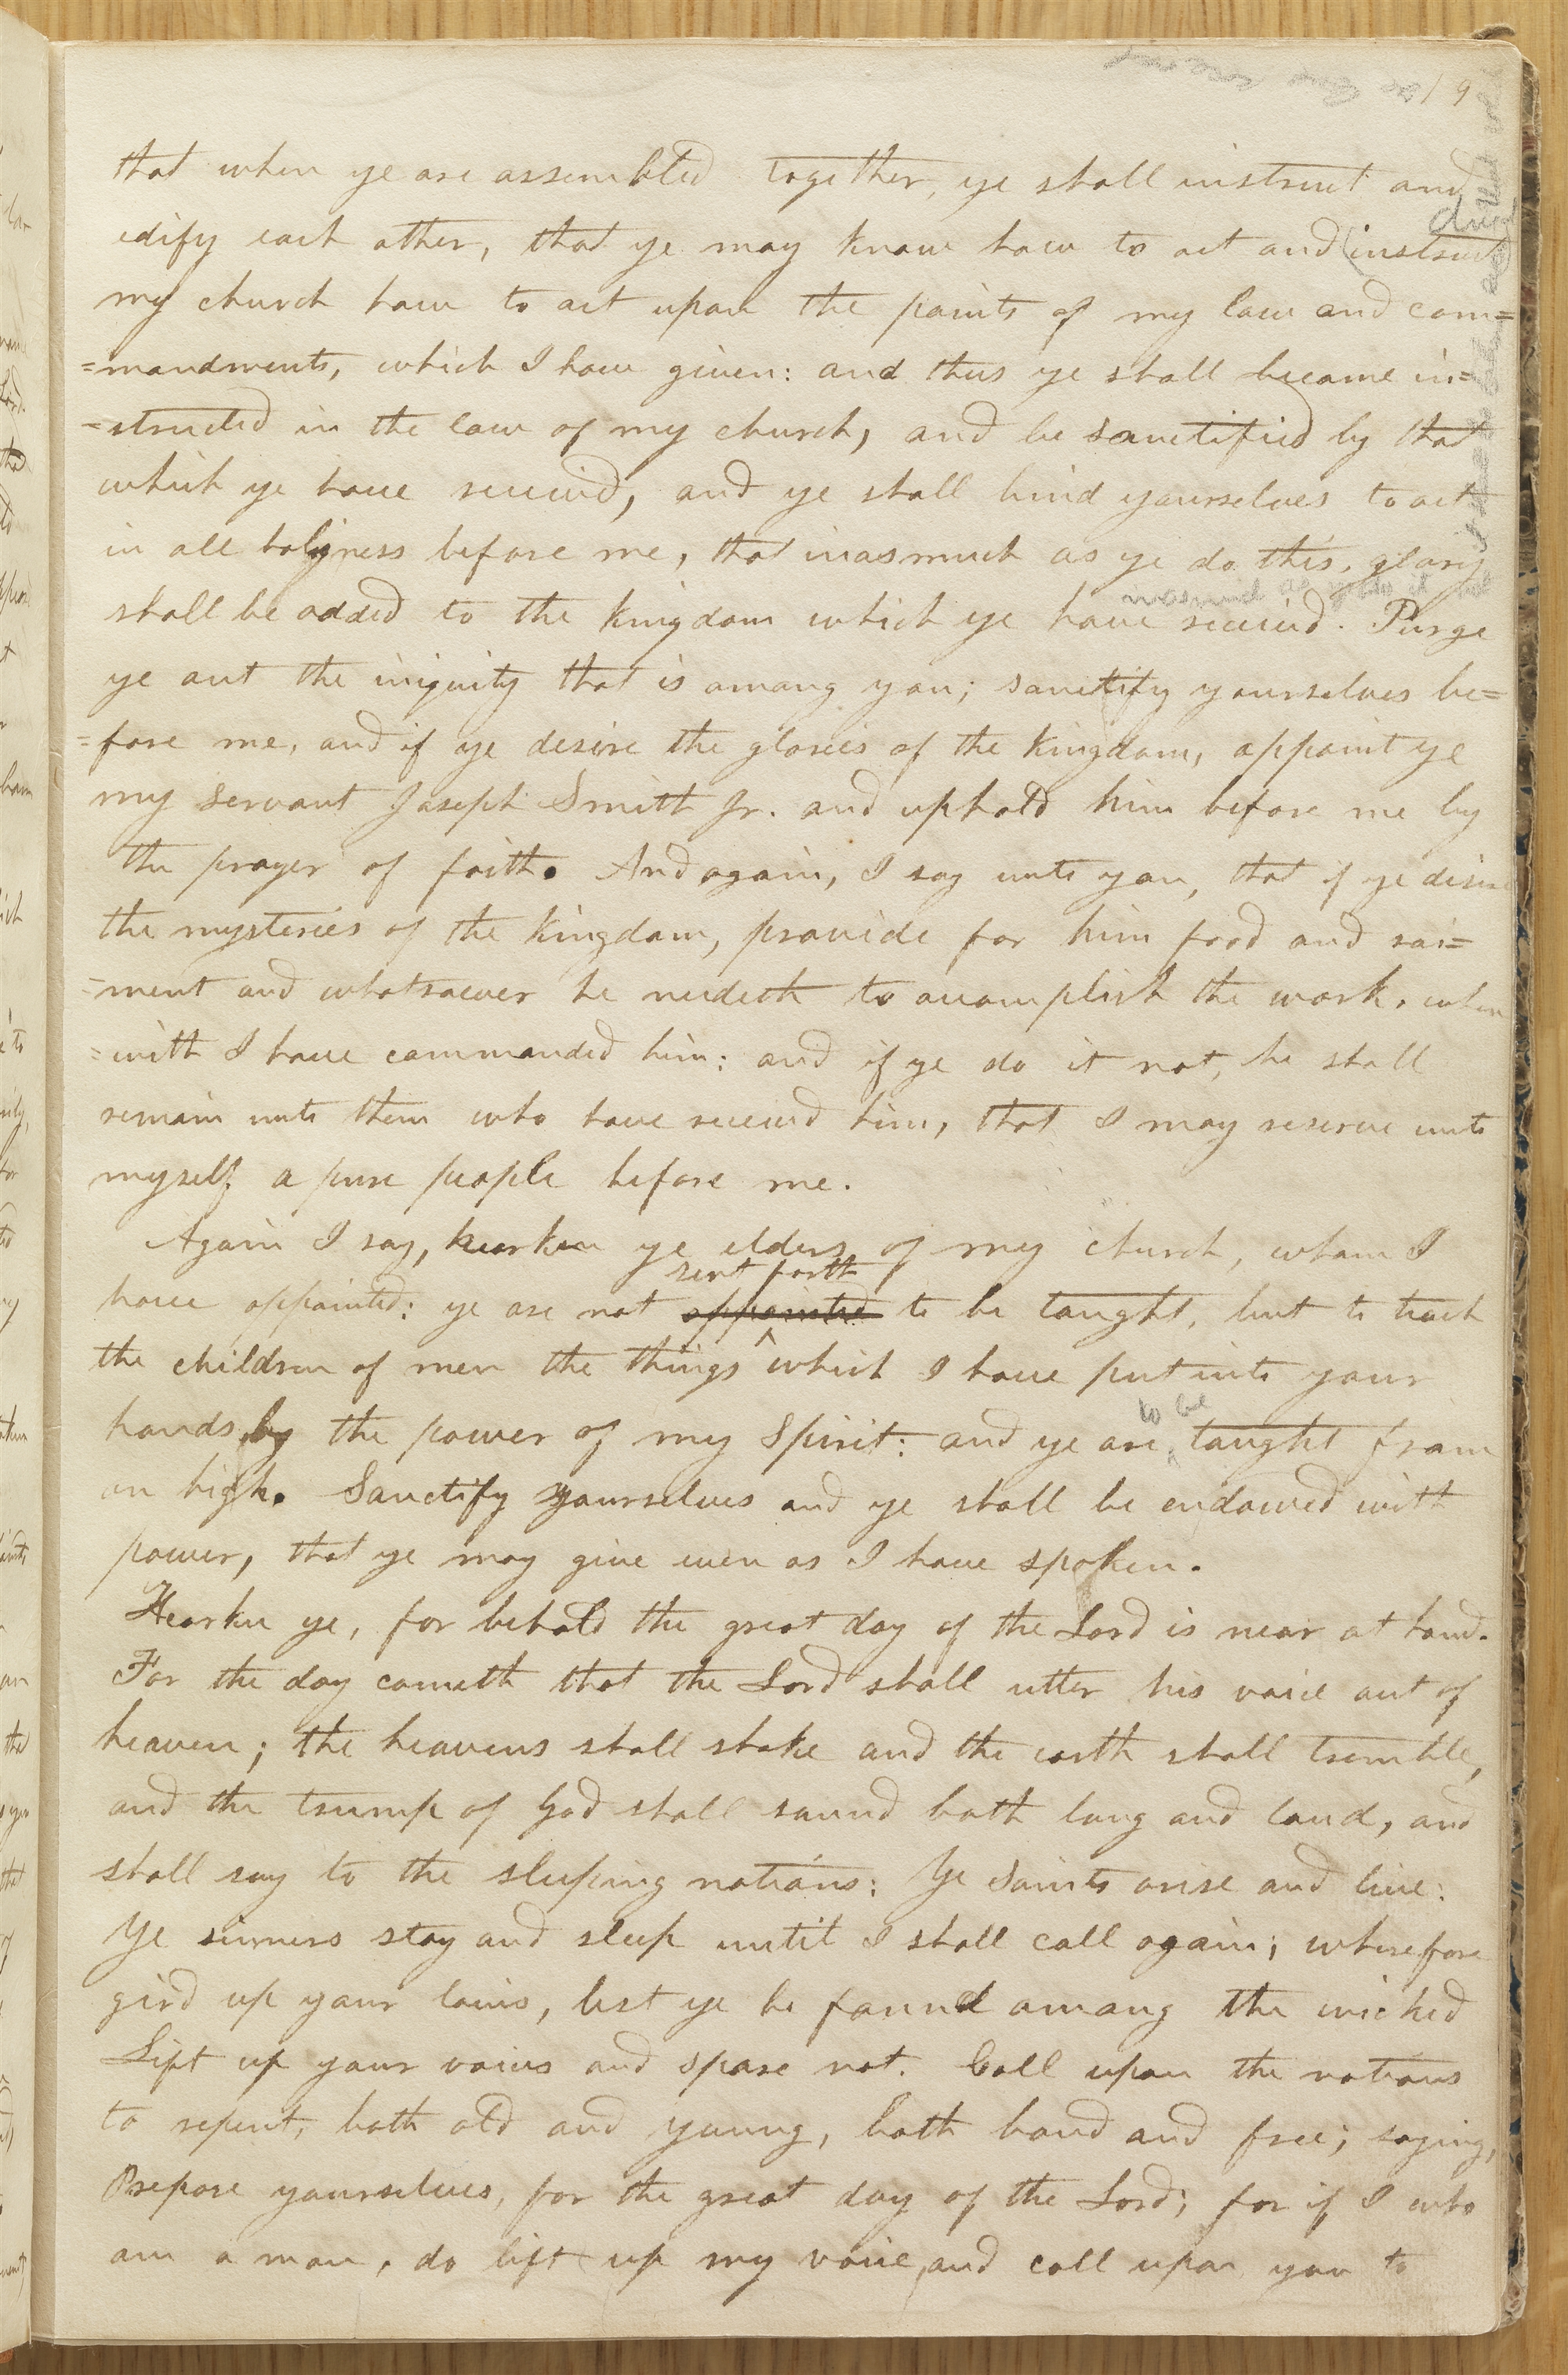 19
that when ye are assembled together, ye shall instruct and
edify each other, that ye may know how to act and (instruct)
direct
my church how to act upon the points of my law and com=
=mandments, which I have given: and thus ye shall become in=
=structed in the law of my church, and be sanctified by that
which ye have received, and ye shall bind yourselves to act
in all holiness before me, that inasmuch as ye do this, glory
inasmuch as ye do it not
shall be added to the kingdom which ye have received. Purge
ye out the iniquity that is among you; sanctify yourselves be=
=fore me, and if ye desire the glories of the kingdom, appoint ye
my servant Joseph Smith Jr. and uphold him before me by
the prayer of faith. And again, I say unto you, that if ye desire
the mysteries of the kingdom, provide for him food and rai=
=ment and whatsoever he needeth to accomplish the work, where
=with I have commanded him: and if ye do it not, he shall
remain unto them who have received him, that I may reserve unto
myself a pure people before me.
Again I say, hearken ye elders of my church, whom I
sent forth
have appointed: ye are not appointed to be taught, but to teach
the children of men the things which I have put into your
to be
hands by the power of my Spirit: and ye are taught from
on high. Sanctify yourselves and ye shall be endowed with
power, that ye may give even as I have spoken.
Hearken ye, for behold the great day of the Lord is near at hand.
For the day cometh that the Lord shall utter his voice out of
heaven; the heavens shall shake and the earth shall tremble,
and the trump of God shall sound both long and loud, and
shall say to the sleeping nations: Ye Saints arise and live:
Ye sinners stay and sleep until I shall call again; wherefore
gird up your loins, lest ye be found among the wicked
Lift up your voices and spare not. Call upon the nations
to repent, both old and young, both bond and free; saying,
Prepare yourselves, for the great day of the Lord; for if I who
am a man, do lift up my voice, and call upon you to